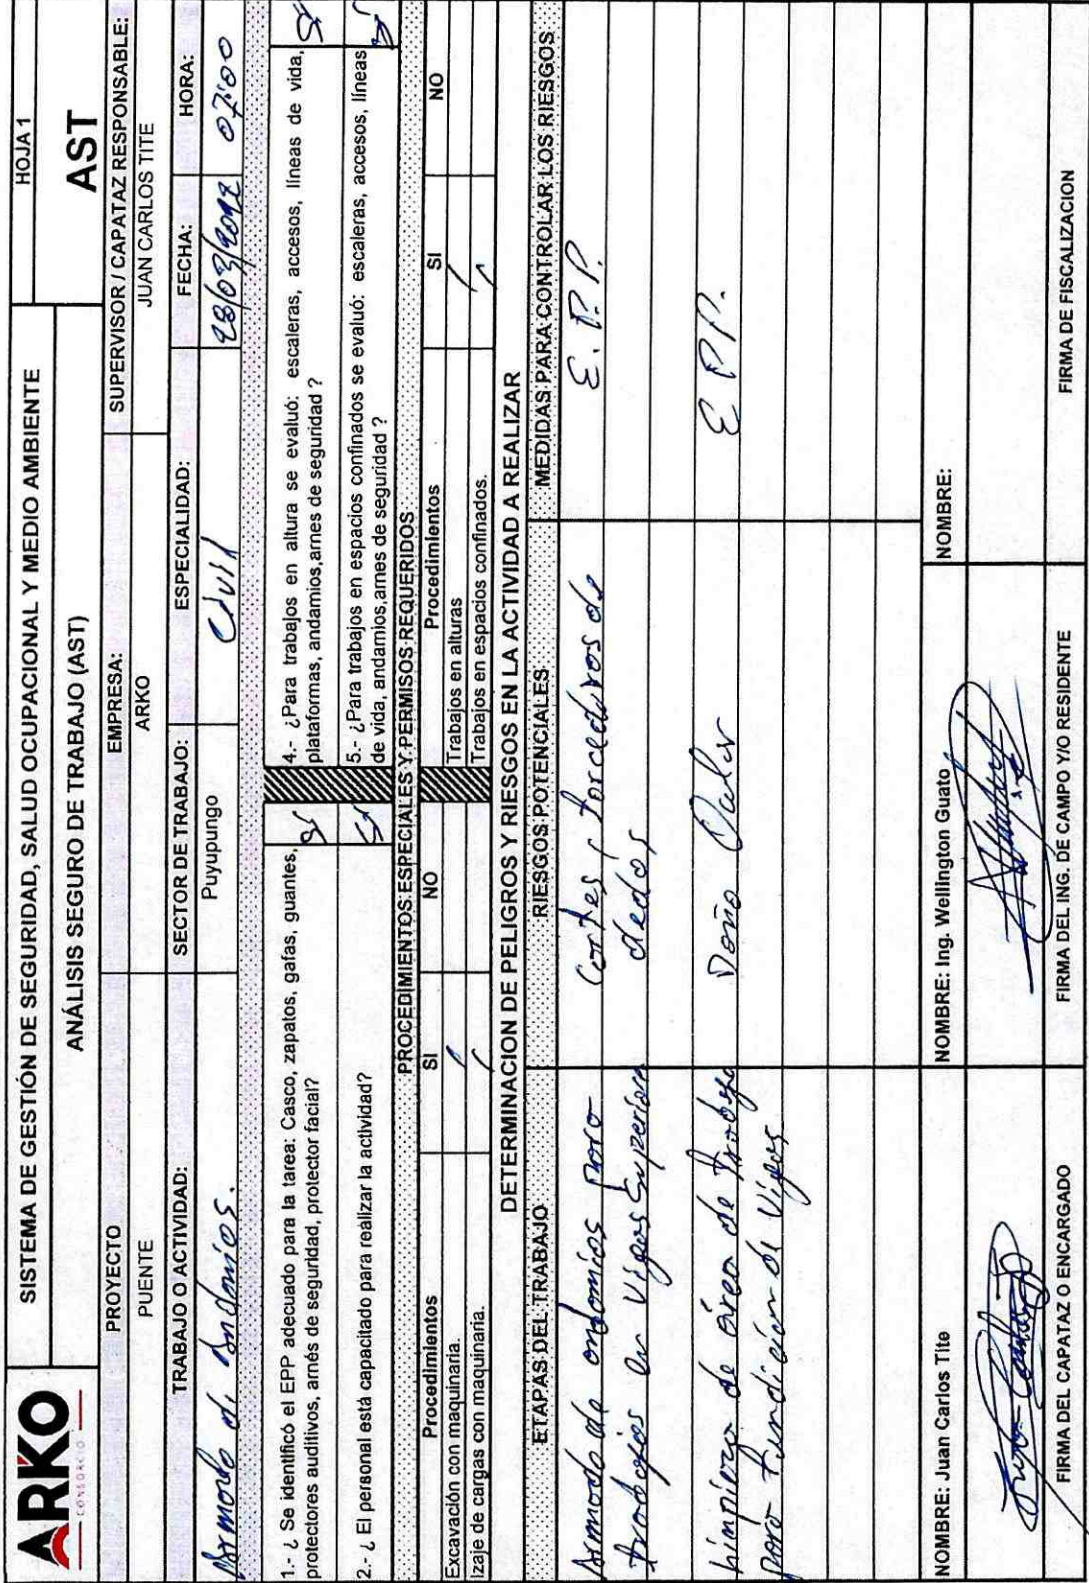 ARKO
CONSORCIO
SISTEMA DE GESTIÓN DE SEGURIDAD, SALUD OCUPACIONAL Y MEDIO AMBIENTE
HOJA 1
ANÁLISIS SEGURO DE TRABAJO (AST)
AST
PROYECTO
EMPRESA:
SUPERVISOR / CAPATAZ RESPONSABLE:
PUENTE
ARKO
JUAN CARLOS TITE
TRABAJO O ACTIVIDAD:
SECTOR DE TRABAJO:
ESPECIALIDAD:
FECHA:
HORA:
Armado de Andamios.
Puyupungo
Civil
28/03/2022
07:00
1.- ¿ Se identificó el EPP adecuado para la tarea: Casco, zapatos, gafas, guantes,
protectores auditivos, arnés de seguridad, protector facial?
Sí
4.- ¿Para trabajos en altura se evaluó: escaleras, accesos, líneas de vida,
plataformas, andamios,arnes de seguridad ?
Sí
2.- ¿ El personal está capacitado para realizar la actividad?
Sí
5.- ¿Para trabajos en espacios confinados se evaluó: escaleras, accesos, líneas
de vida, andamios,arnes de seguridad ?
Sí
PROCEDIMIENTOS ESPECIALES Y PERMISOS REQUERIDOS
Procedimientos
SI
NO
Procedimientos
SI
NO
Excavación con maquinaria.
/
Trabajos en alturas
/
Izaje de cargas con maquinaria.
/
Trabajos en espacios confinados.
/
DETERMINACION DE PELIGROS Y RIESGOS EN LA ACTIVIDAD A REALIZAR
ETAPAS DEL TRABAJO
RIESGOS POTENCIALES
MEDIDAS PARA CONTROLAR LOS RIESGOS
Armado de andamios para
Cortes, torceduras de
E.P.P.
trabajos en Vigas Superiores
dedos
Limpieza de área de trabajo
Daño
E PP.
para fundición de Vigas
NOMBRE: Juan Carlos Tite
NOMBRE: Ing. Wellington Guato
NOMBRE:
FIRMA DEL CAPATAZ O ENCARGADO
FIRMA DEL ING. DE CAMPO Y/O RESIDENTE
FIRMA DE FISCALIZACION